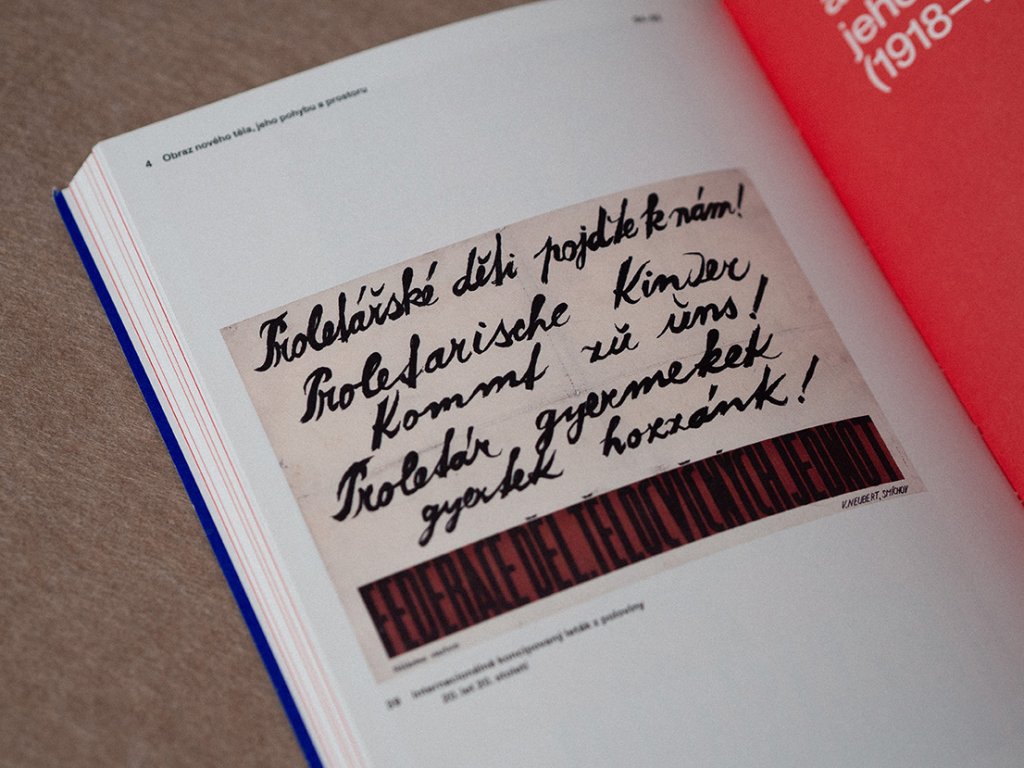 4 Obraz nového těla, jeho pohybu a prostoru
Proletářské děti pojďte k nám!
Proletarische Kinder
Kommt zŭ ŭns!
Proletár gyermekek
gyertek hozzánk!
FEDERACE DĚL. TĚLOCVIČNÝCH JEDNOT!
V. NEUBERT, SMÍCHOV
Internacionálně koncipovaný leták z poloviny
20. let 20. století
jeho
(1918–